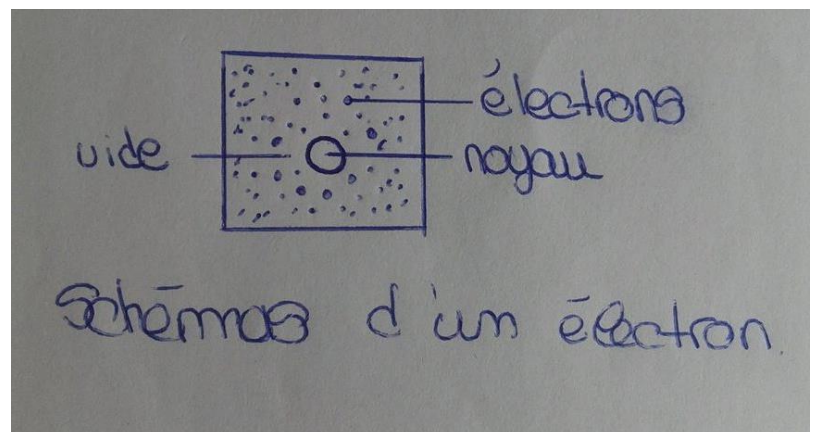 électrons
vide
noyau
Schémas d'un électron.